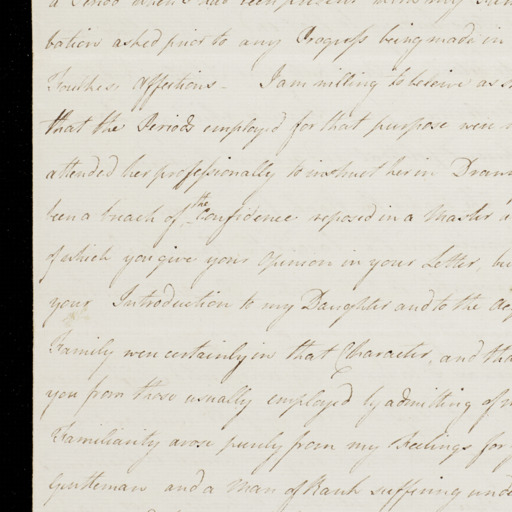 a Period when I had been present with my
bation asked prior to any Progress being made in
Foulkes Affections - I am willing to believe as
that the Periods employed for that purpose were
attended her professionally to instruct her in Draw
been a breach of the Confidence reposed in a Master
of which you give your Opinion in your Letter, bu
your Introduction to my Daughter and to the
Family were certainly in that Character, and tha
you from those usually employed by admitting of
Familiarity arose purely from my Feelings for
Gentleman and a Man of Rank suffering und